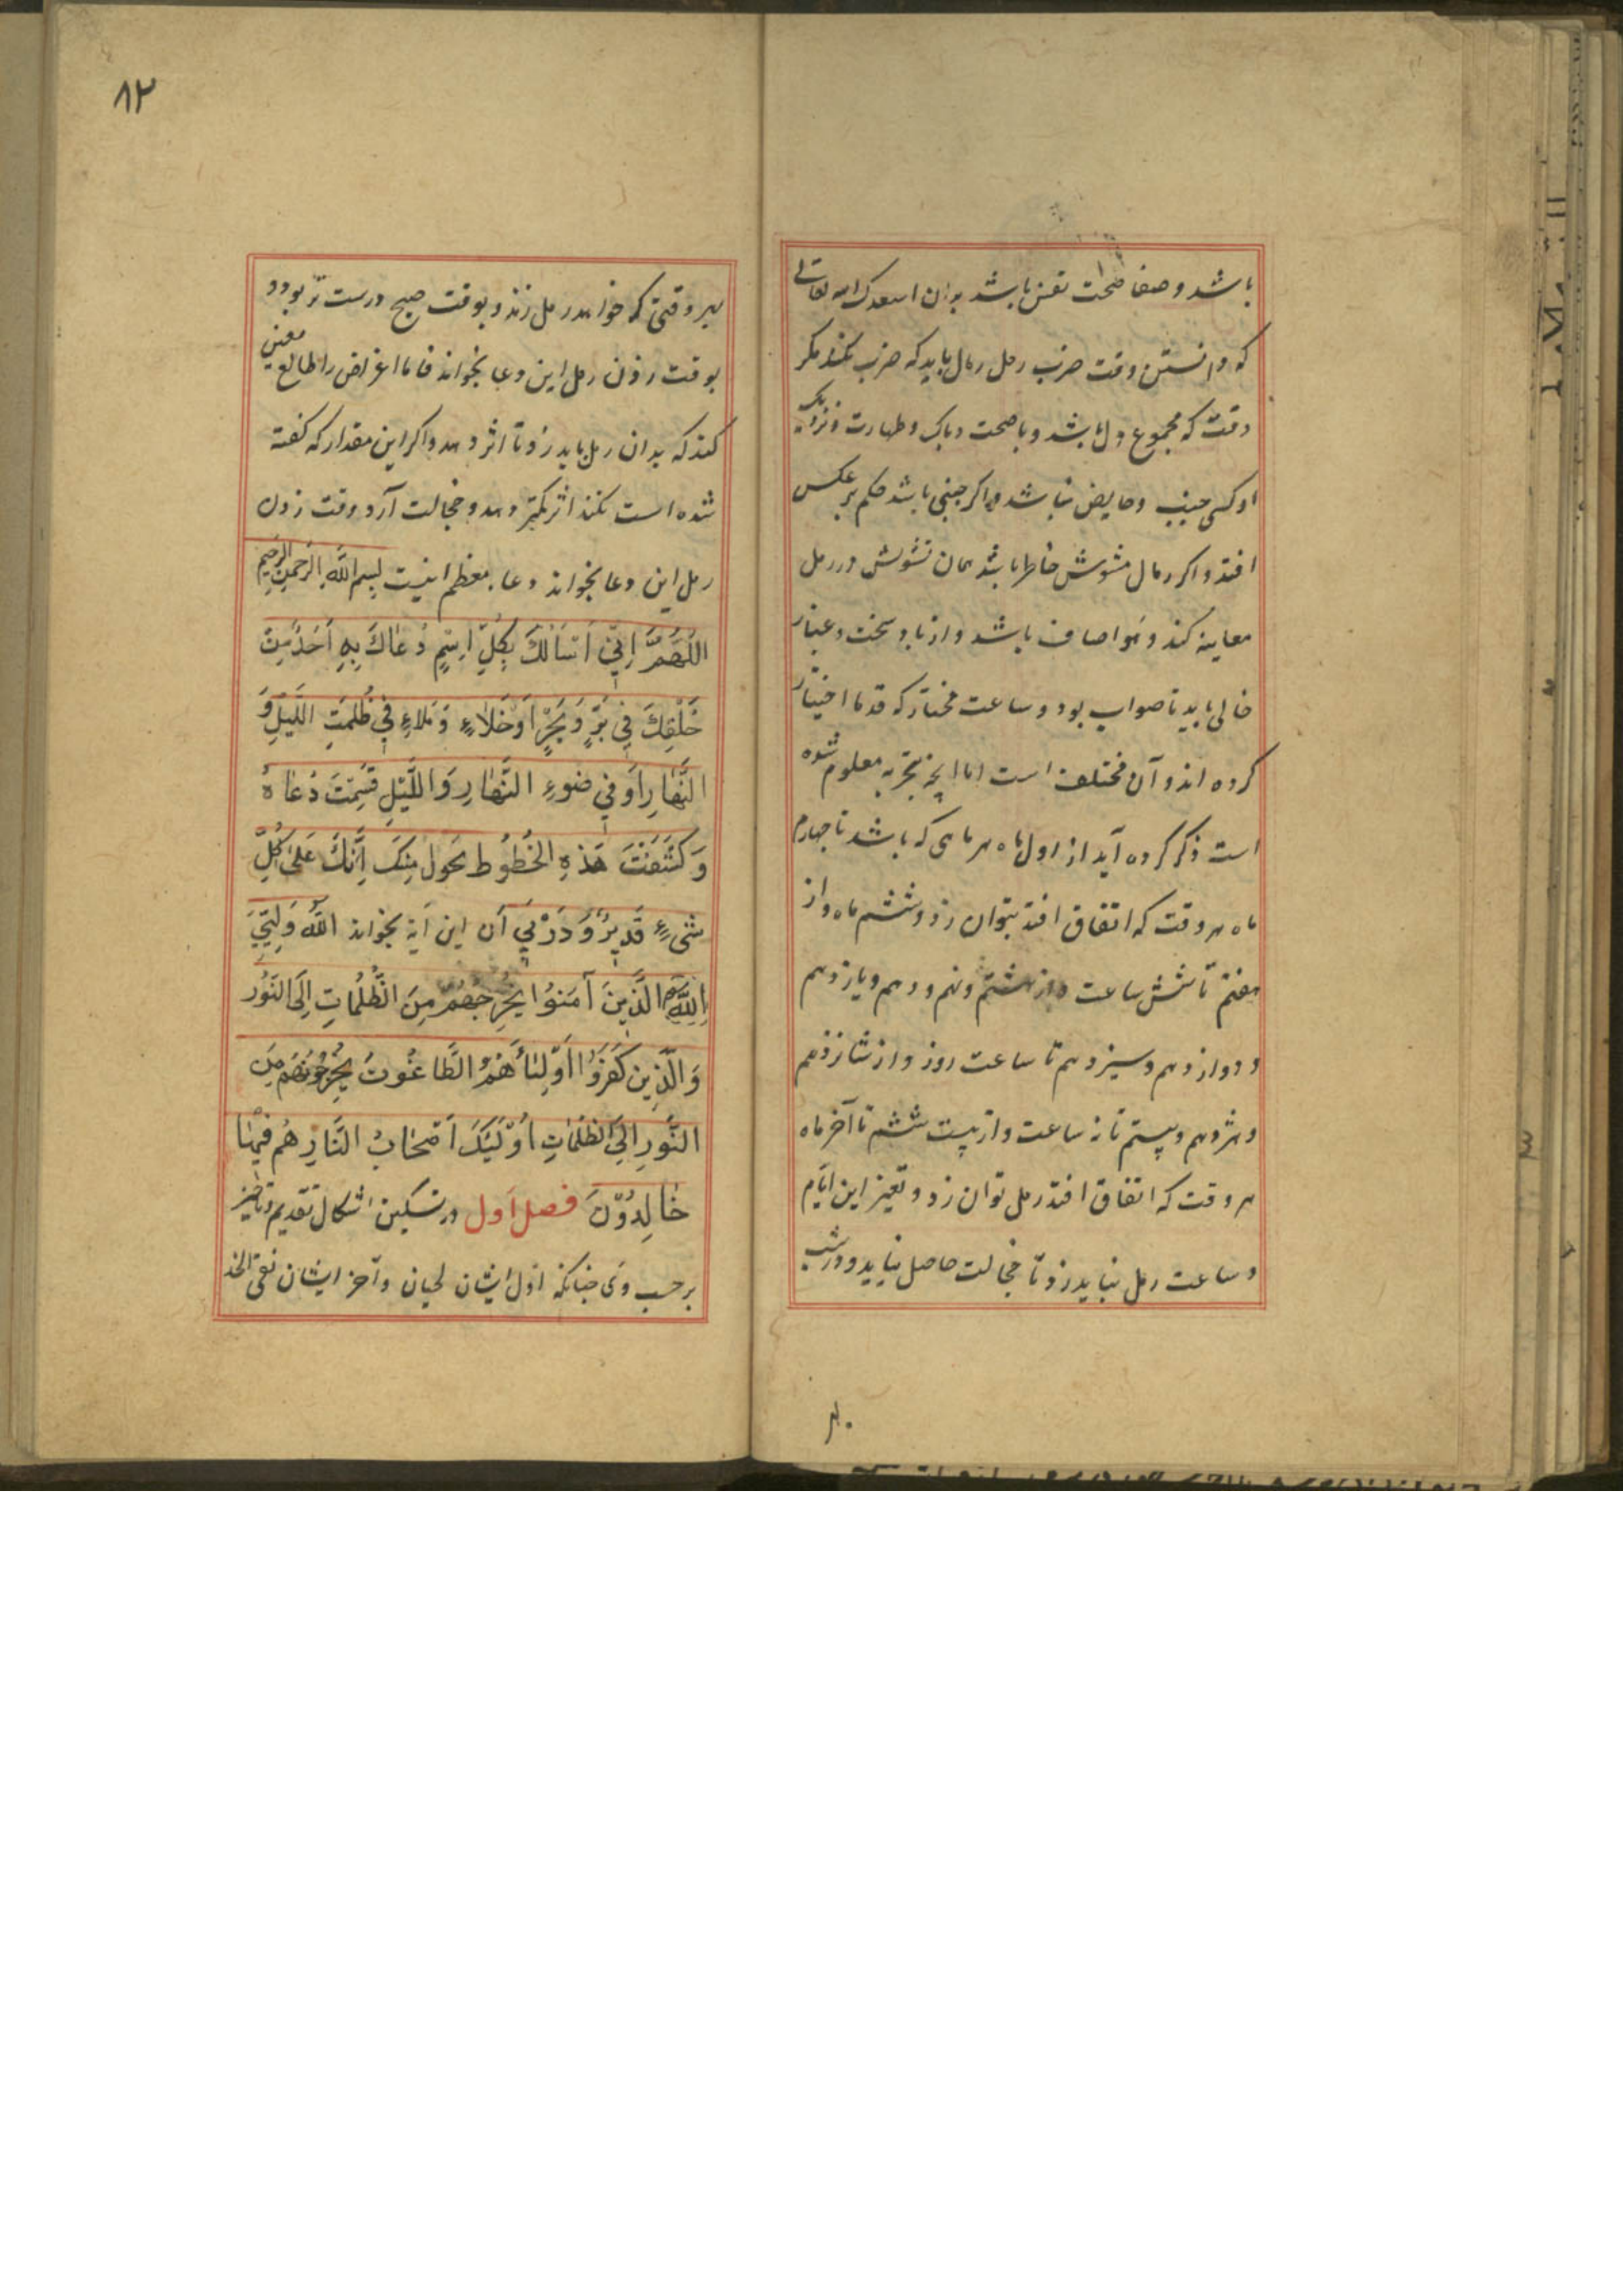 باشد و صفا صحت نفس باشد بدان اسعدک الله تعالی
که دانستن وقت ضرب رمل رمال باید که ضرب نکند مکر
وقت که مجموع دل باشد و باصحت و پاک و طهارت و نزدیک
او کسی جنیب و حایض نباشد و اکر جنبی باشد حکم بر عکس
افتد و اکر رمال مشوش خاطر باشد همان تشویش در رمل
معاینه کند و هوا صاف باشد و از باد سخت و غبار
خالی باید تا صواب بود و ساعت مختار که قدما اختیار
کرده اند و آن مختلف است اما انچه بتجربه معلوم شده
است ذکر کرده آید از اول ماه هر ماهی که باشد تا چهارم
ماه هر وقت که اتفاق افتد بتوان زد و ششم ماه و از
هفتم تا شش ساعت و از هشتم و نهم و دهم و یازدهم
و دوازدهم و سیزدهم تا ساعت روز و از شانزدهم
و هژدهم و بیستم تا نه ساعت و از بیست ششم تا آخر ماه
هر وقت که اتفاق افتد رمل توان زد و بغیر این ایام
و ساعت رمل نباید زد تا خجالت حاصل نیاید و در شب
۸۲
بهر وقتی که خواهد رمل زند و بوقت صبح درست تر بود و
بوقت زدن رمل این دعا بخواند فاما اغراض را طالع معین
کند که بدان رمل باید زد تا اثر دهد و اکر این مقدار که کفته
شده است نکند اثر کمتر دهد و خجالت آرد و وقت زدن
رمل این دعا بخواند دعاء معظم اینست بِسمِ اللهِ الرَّحمنِ الرَّحیمِ
اللَّهُمَّ اِنِّي اَسْاَلُكَ بِكُلِّ اِسْمٍ دُعَاكَ بِهِ اَحَدٌ مِنْ
خَلْقِكَ فِي بَرٍّ وَبَحْرٍ اَوْ خَلَاءٍ وَمَلَاءٍ فِي ظُلمَتِ اللَّيْلِ وَ
النَّهَارِ اَوْ فِي ضَوءِ النَّهَارِ وَاللَّيْلِ قَسِمْتَ دُعَاهُ
وَكَشَفْتَ هَذِهِ الخُطُوطِ بحَول مِنْكَ اِنَّكَ عَلى كُلِّ
شَىءٍ قَدِيرٌ وَ دَرْ پَي آن این آیة بخواند اللهُ وَلِيُّ
الَّذِينَ آمَنُوا يُخْرِجُهُم مِنَ الظُّلُمَاتِ اِلَى النُّور
وَالَّذِين كَفَرُوا اَوْلِيَاُهُمُ الطَّاغُوتَ يُخْرِجُونَهُم مِنَ
النُّورِ اِلَى الظُّلُمَاتِ اُوْلَئِكَ اَصْحَابُ النَّارِ هُم فِيهَا
خَالِدُوْنَ فصل اول در تسکین اشکال تقدیم و تاخیر
بر حسب وی چنانکه اول ایشان لحیان و آخر ایشان نقی الخد